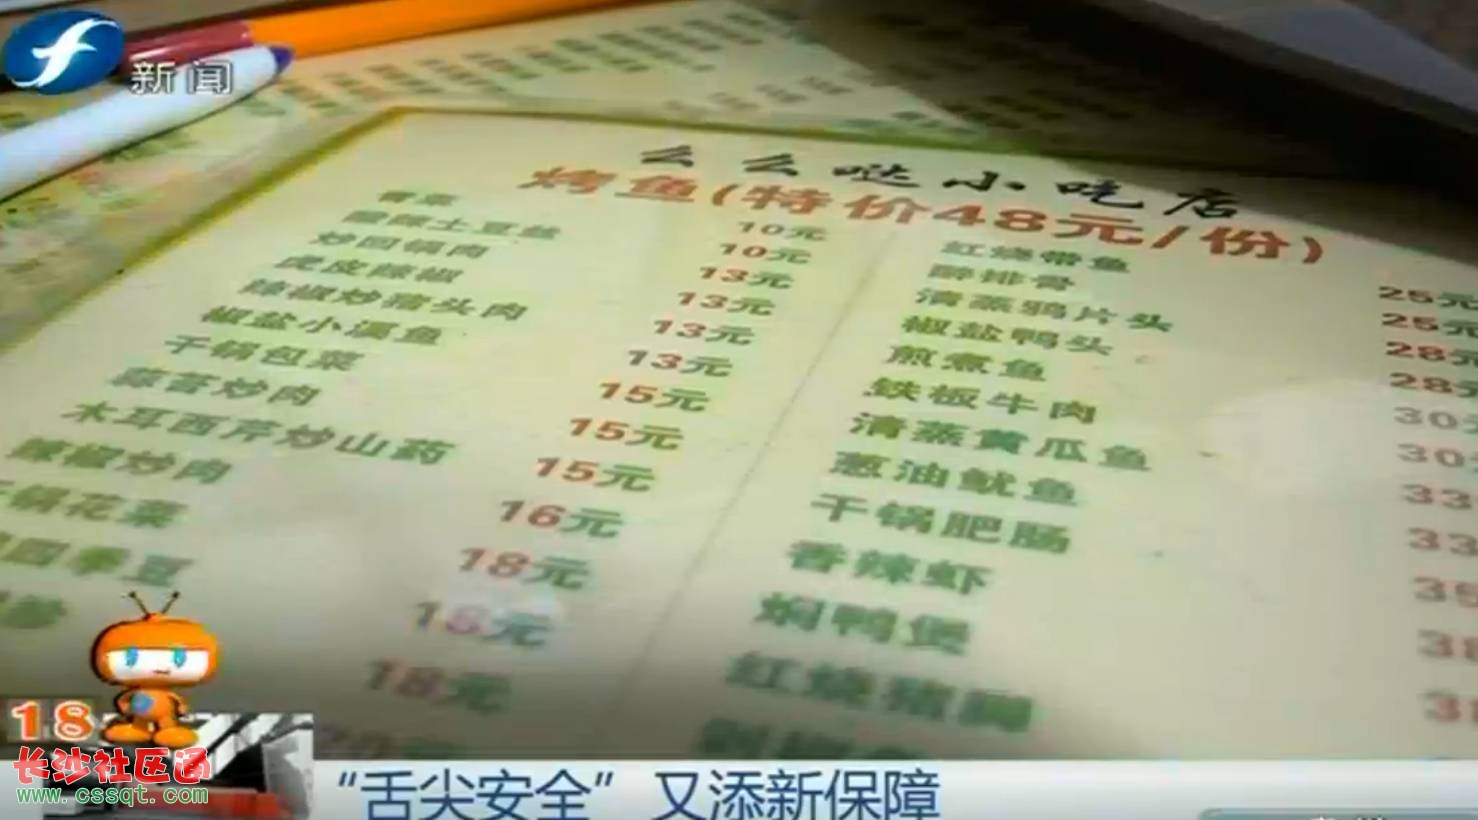 新闻
么么哒小吃店
烤鱼(特价48元/份)
青菜 10元
酸辣土豆丝 10元
炒回锅肉 13元
虎皮辣椒 13元
辣椒炒猪头肉 13元
椒盐小溪鱼 13元
干锅包菜 15元
蒜苔炒肉 15元
木耳西芹炒山药 15元
辣椒炒肉 16元
干锅花菜 18元
四季豆 16元
18元
红烧带鱼 25元
醉排骨 25元
清蒸鸦片头 28元
椒盐鸭头 28元
煎煮鱼 30元
铁板牛肉 30
清蒸黄瓜鱼 33
葱油鱿鱼 33
干锅肥肠
香辣虾
焖鸭煲
红烧
18
长沙社区通
www.cssqt.com
“舌尖安全”又添新保障